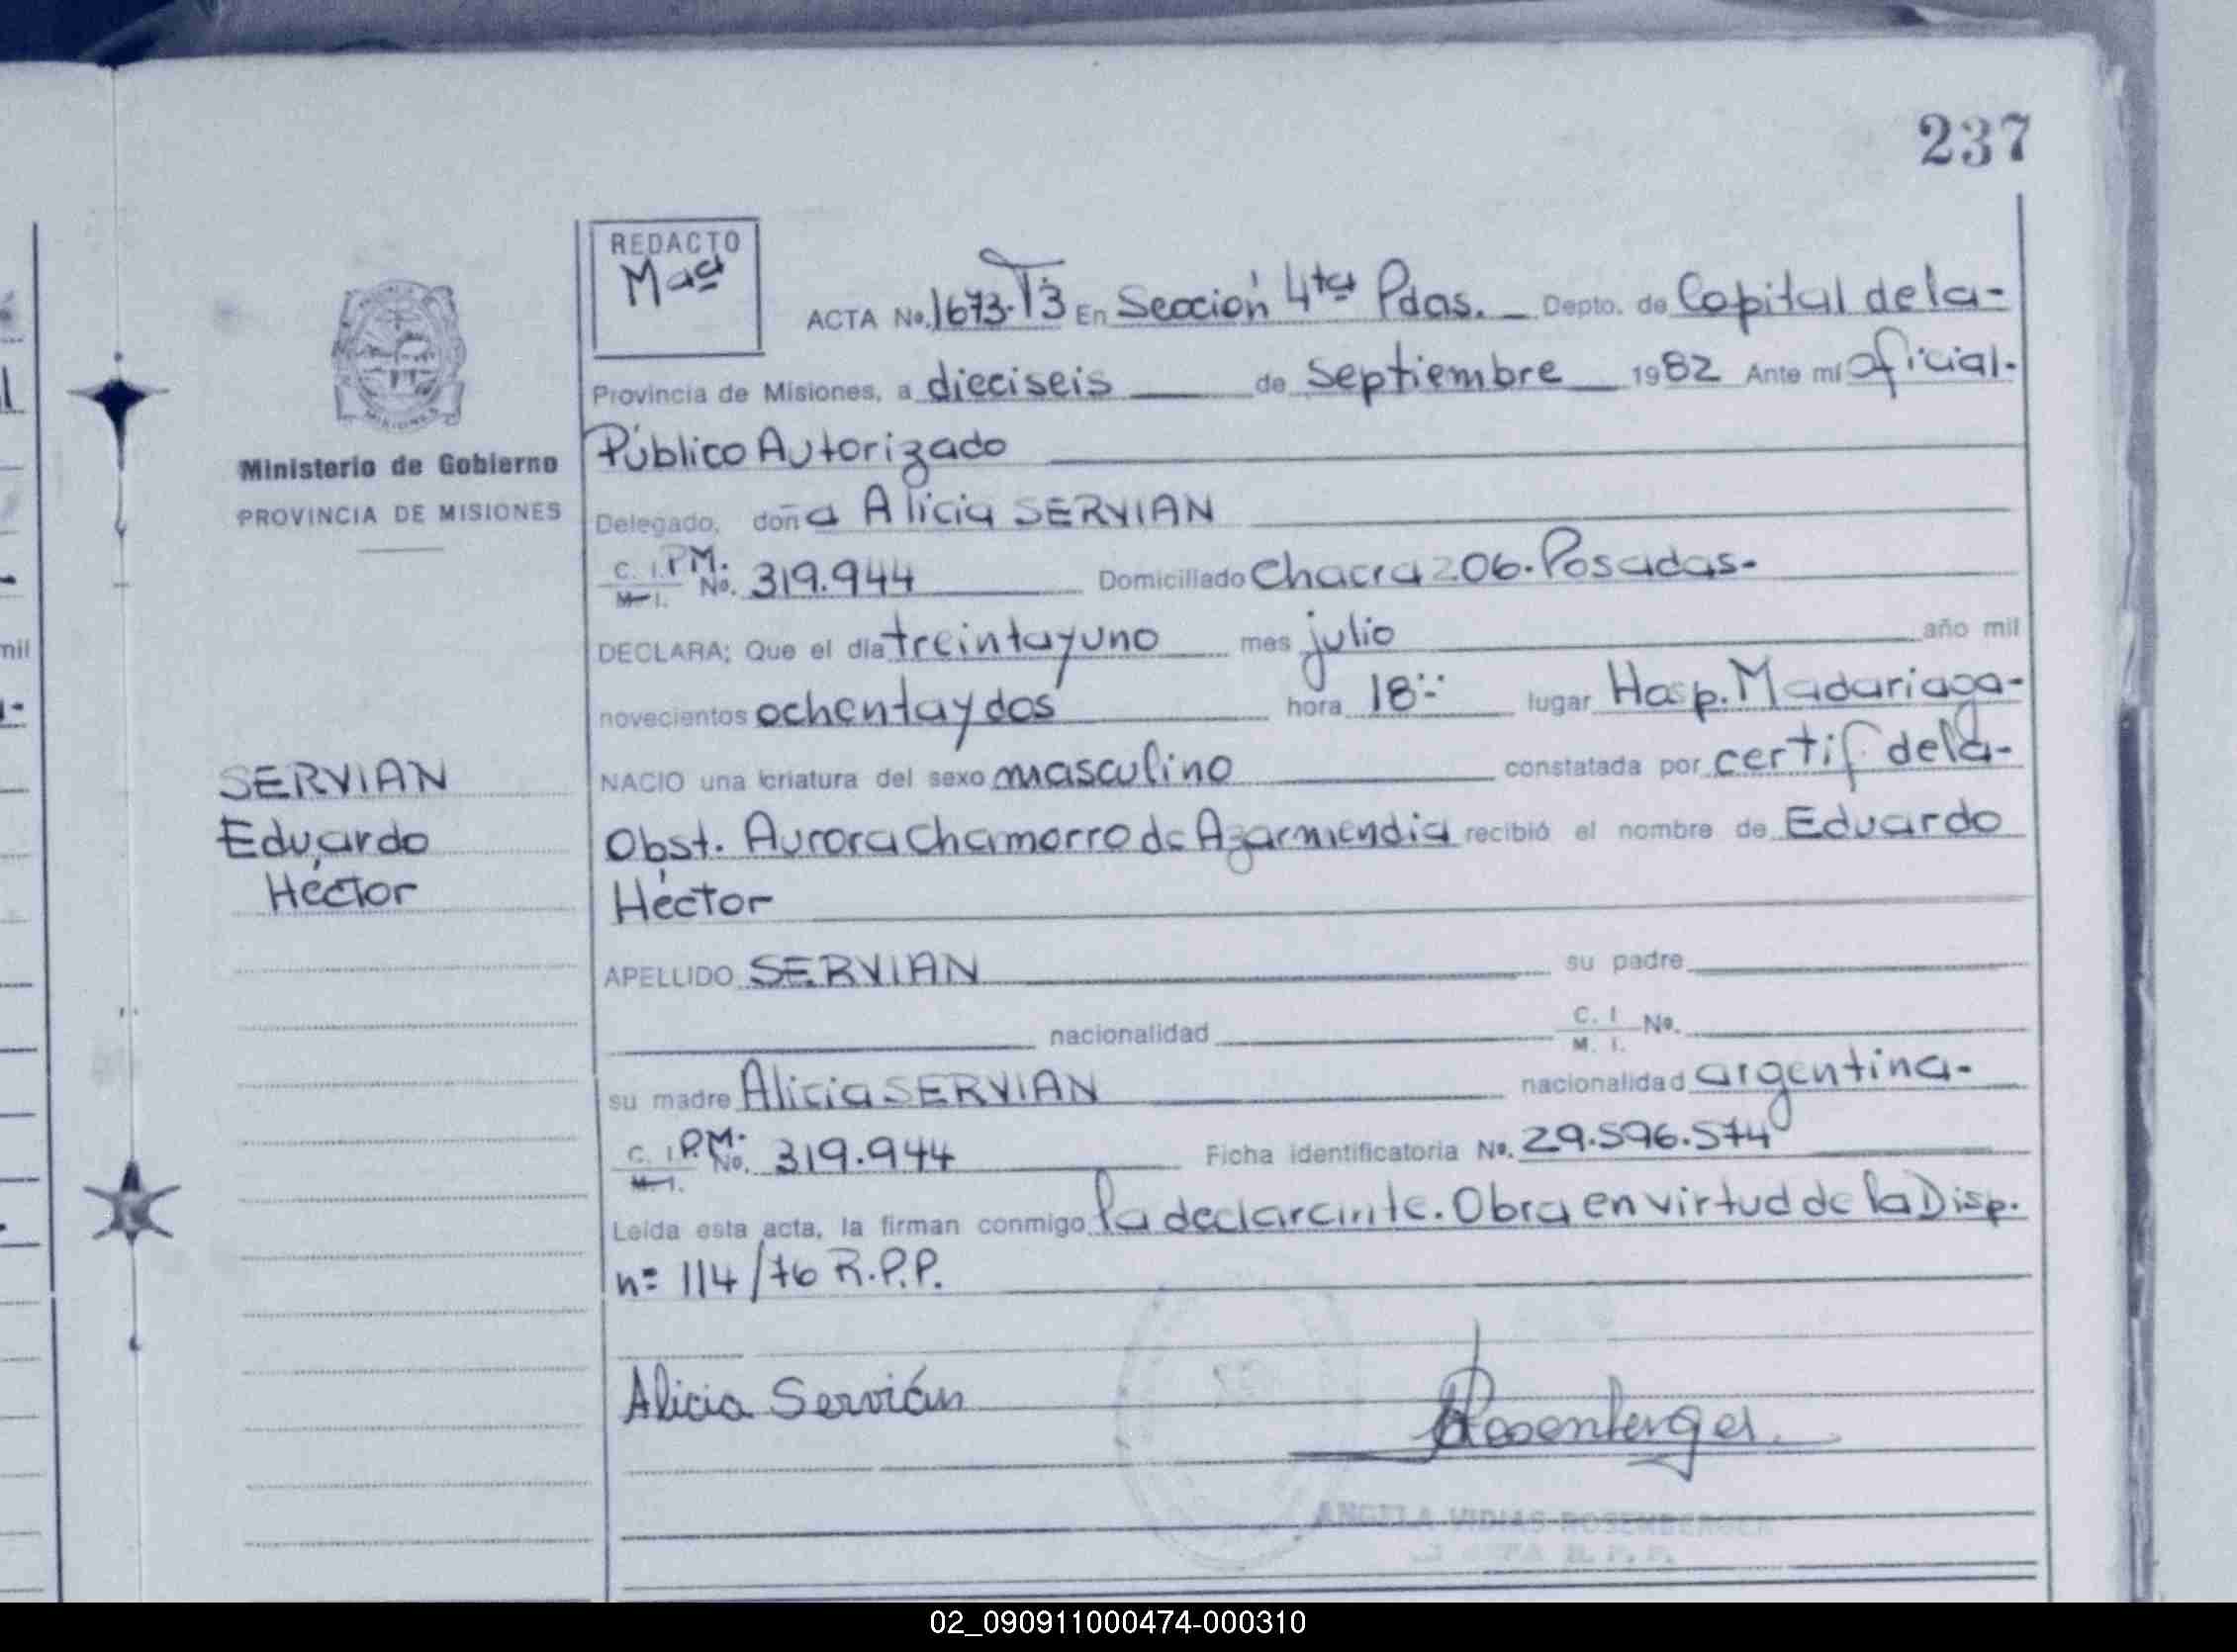 237
REDACTO
Mag
ACTA No. 1673.T3 En Sección 4ta Pdas. _ Depto. de Capital de la-
Provincia de Misiones, a dieciseis de Septiembre 1982 Ante mí Oficial.
Público Autorizado
Ministerio de Gobierno
PROVINCIA DE MISIONES
Delegado, doña Alicia SERVIAN
C. I. P.M. No. 319.944 Domiciliado Chacra 206. Posadas.-
M. I.
DECLARA; Que el día treinta y uno mes julio año mil
novecientos ochenta y dos hora 18 lugar Hosp. Madariaga-
NACIO una criatura del sexo masculino constatada por certif de la-
Obst. Aurora Chamorro de Azarmendia recibió el nombre de Eduardo
Héctor
SERVIAN
Eduardo
Héctor
APELLIDO SERVIAN su padre
nacionalidad C. I. No.
M. I.
su madre Alicia SERVIAN nacionalidad argentina-
C. I. P.M. No. 319.944 Ficha identificatoria No. 29.596.574
M. I.
Leída esta acta, la firman conmigo la declarante. Obra en virtud de la Disp.
nº 114/76 R.P.P.
Alicia Servián
Rosenberger
ANGELA VIDIAS ROSENBERGER
R. P. P.
02_090911000474-000310